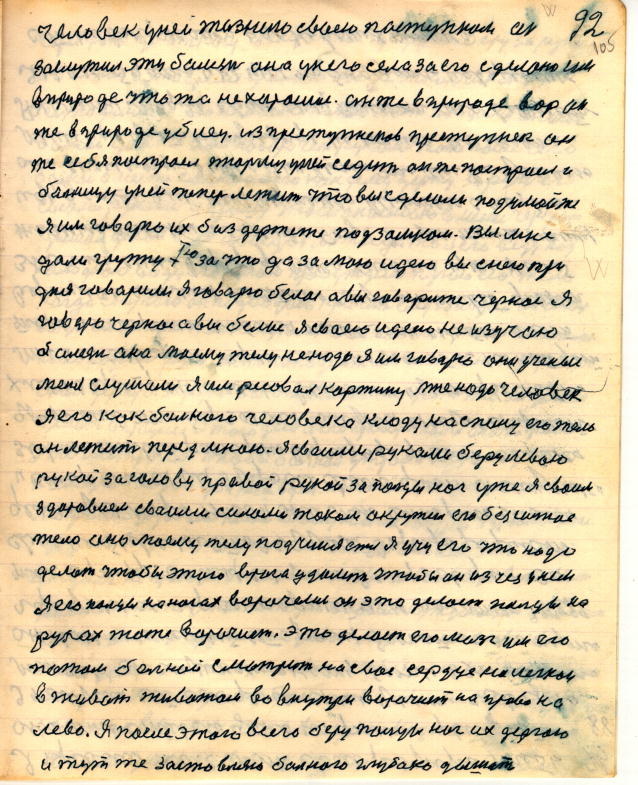 92
105
человек уней жазнею своею поступком он
заслужил эту болезн она унего села заего сделаною им
вприроде что та нехорошие. онже вприроде вор он
же вприроде убиец. из преступников преступнек он
же себя построел тюрму уней седит онже построел и
болницу уней тепер лежит что вы сделоли подумойте
Яим говарю их без держете подзамком. Вы мне
дали групу 1ю за что да за мою идею вы снею три
дня говарили Я говарю белое авы говарите черное Я
говарю черное авы белое Я сваею идею не изучаю
болезн она моему телу ненодо Я им говарю они ученые
меня слушали Я им рисовал картину мне нодо человек
Яего как болного человека кладу наспену его тело
он лежит передмною. Я сваими руками беру левою
рукой заголову правой рукой за палцы ног уже Я своим
здоровием сваими силоми током окружил его безсилное
тело оно моему телу подчиняется Я учу его что нодо
делат чтобы этого врага удалит чтобы он изчез унем
Яего палцы наногах ворочели он это делает палцы на
руках тоже ворочает. это делает его мозг им его
потом болной смотрит на свое сердце налегкои
вживот животом во внутри ворочает на право на
лево. Я после этого всего беру палцы ног их дергаю
и тут же застовляю болного глубоко дышат